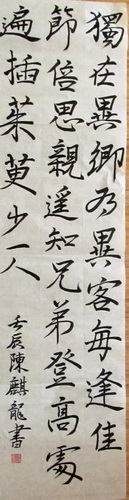 獨在異鄉為異客每逢佳
節倍思親遥知兄弟登高處
遍插茱萸少一人
壬辰陳麒龍書